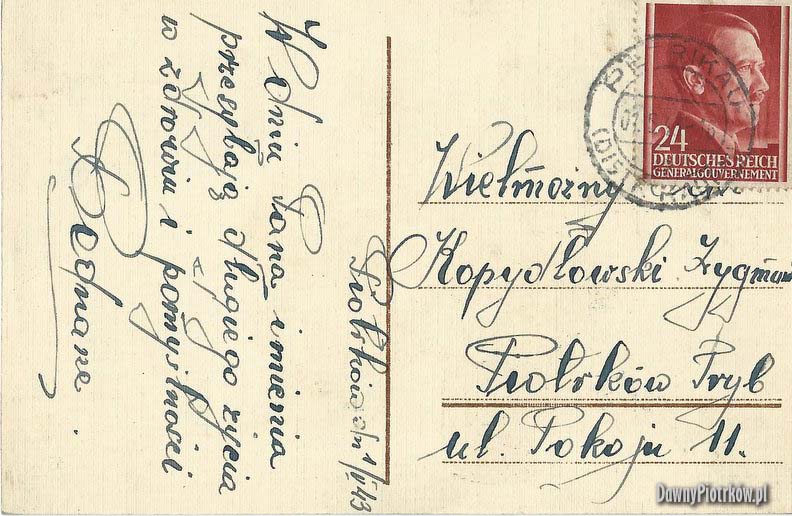 W dniu Pana imienia
przesyłają długiego życia
w zdrowiu i pomyślności
Piotrków dn 1/V 43
Wielmożny Pan
Kopydłowski Zygmunt
Piotrków Tryb
ul. Pokoju 11.
24
DEUTSCHES REICH
GENERALGOUVERNEMENT
PETRIKAU
DawnyPiotrków.pl